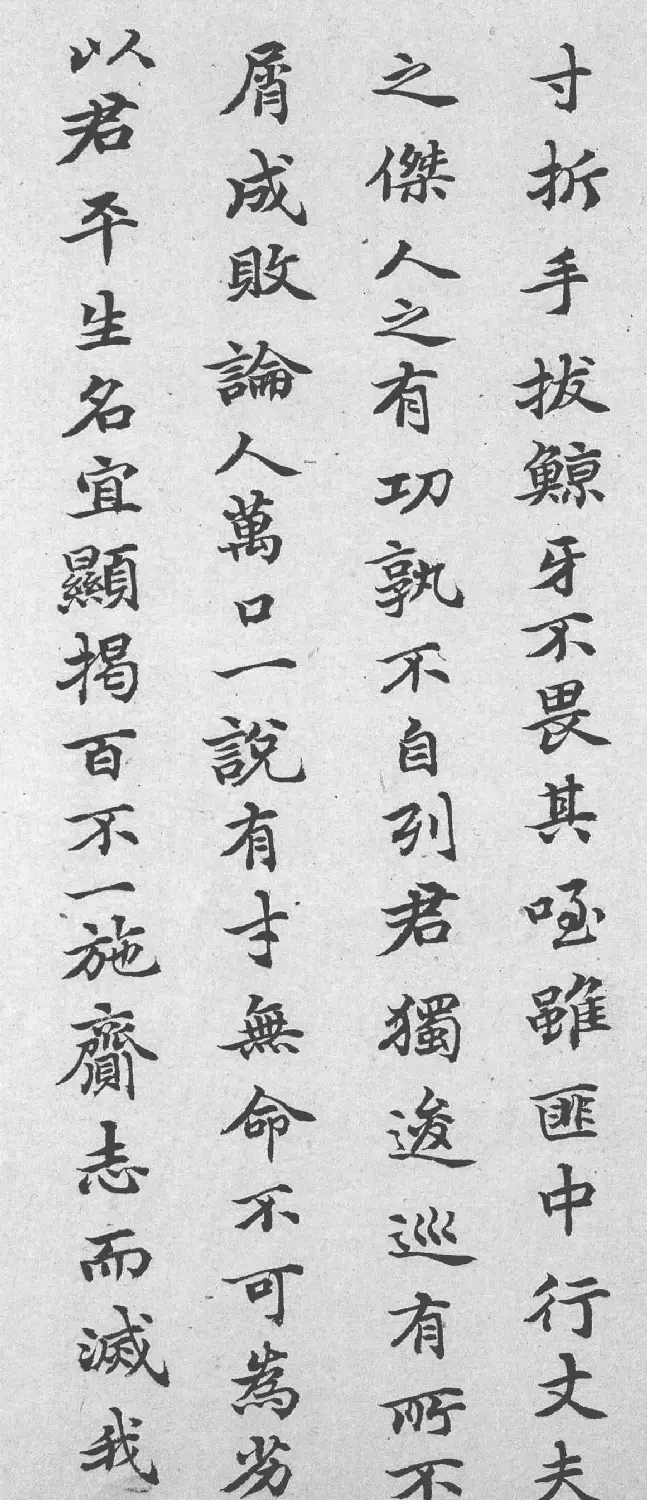 寸折手拔鯨牙不畏其咥雖匪中行丈夫
之傑人之有功孰不自列君獨逡巡有所不
屑成敗論人萬口一說有才無命不可為劣
以君平生名宜顯揭百不一施齎志而滅我